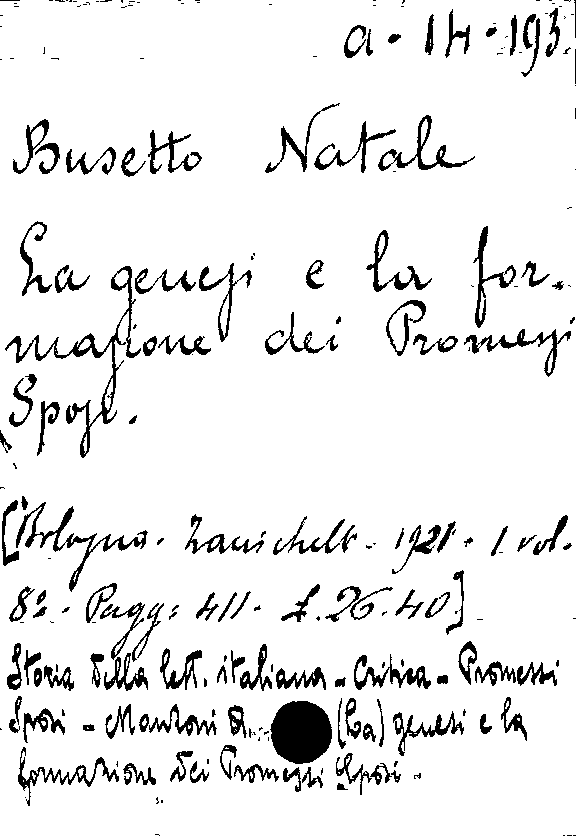 a - 14 - 193
Busetto Natale
La genesi e la for-
mazione dei Promessi
Sposi.
[Bologna. Zanichelli - 1921 - 1 vol.
8º - Pagg: 411 - £. 26.40]
Storia della lett. italiana - Critica - Promessi
Sposi - Manzoni A. (La) genesi e la
formazione dei Promessi Sposi -